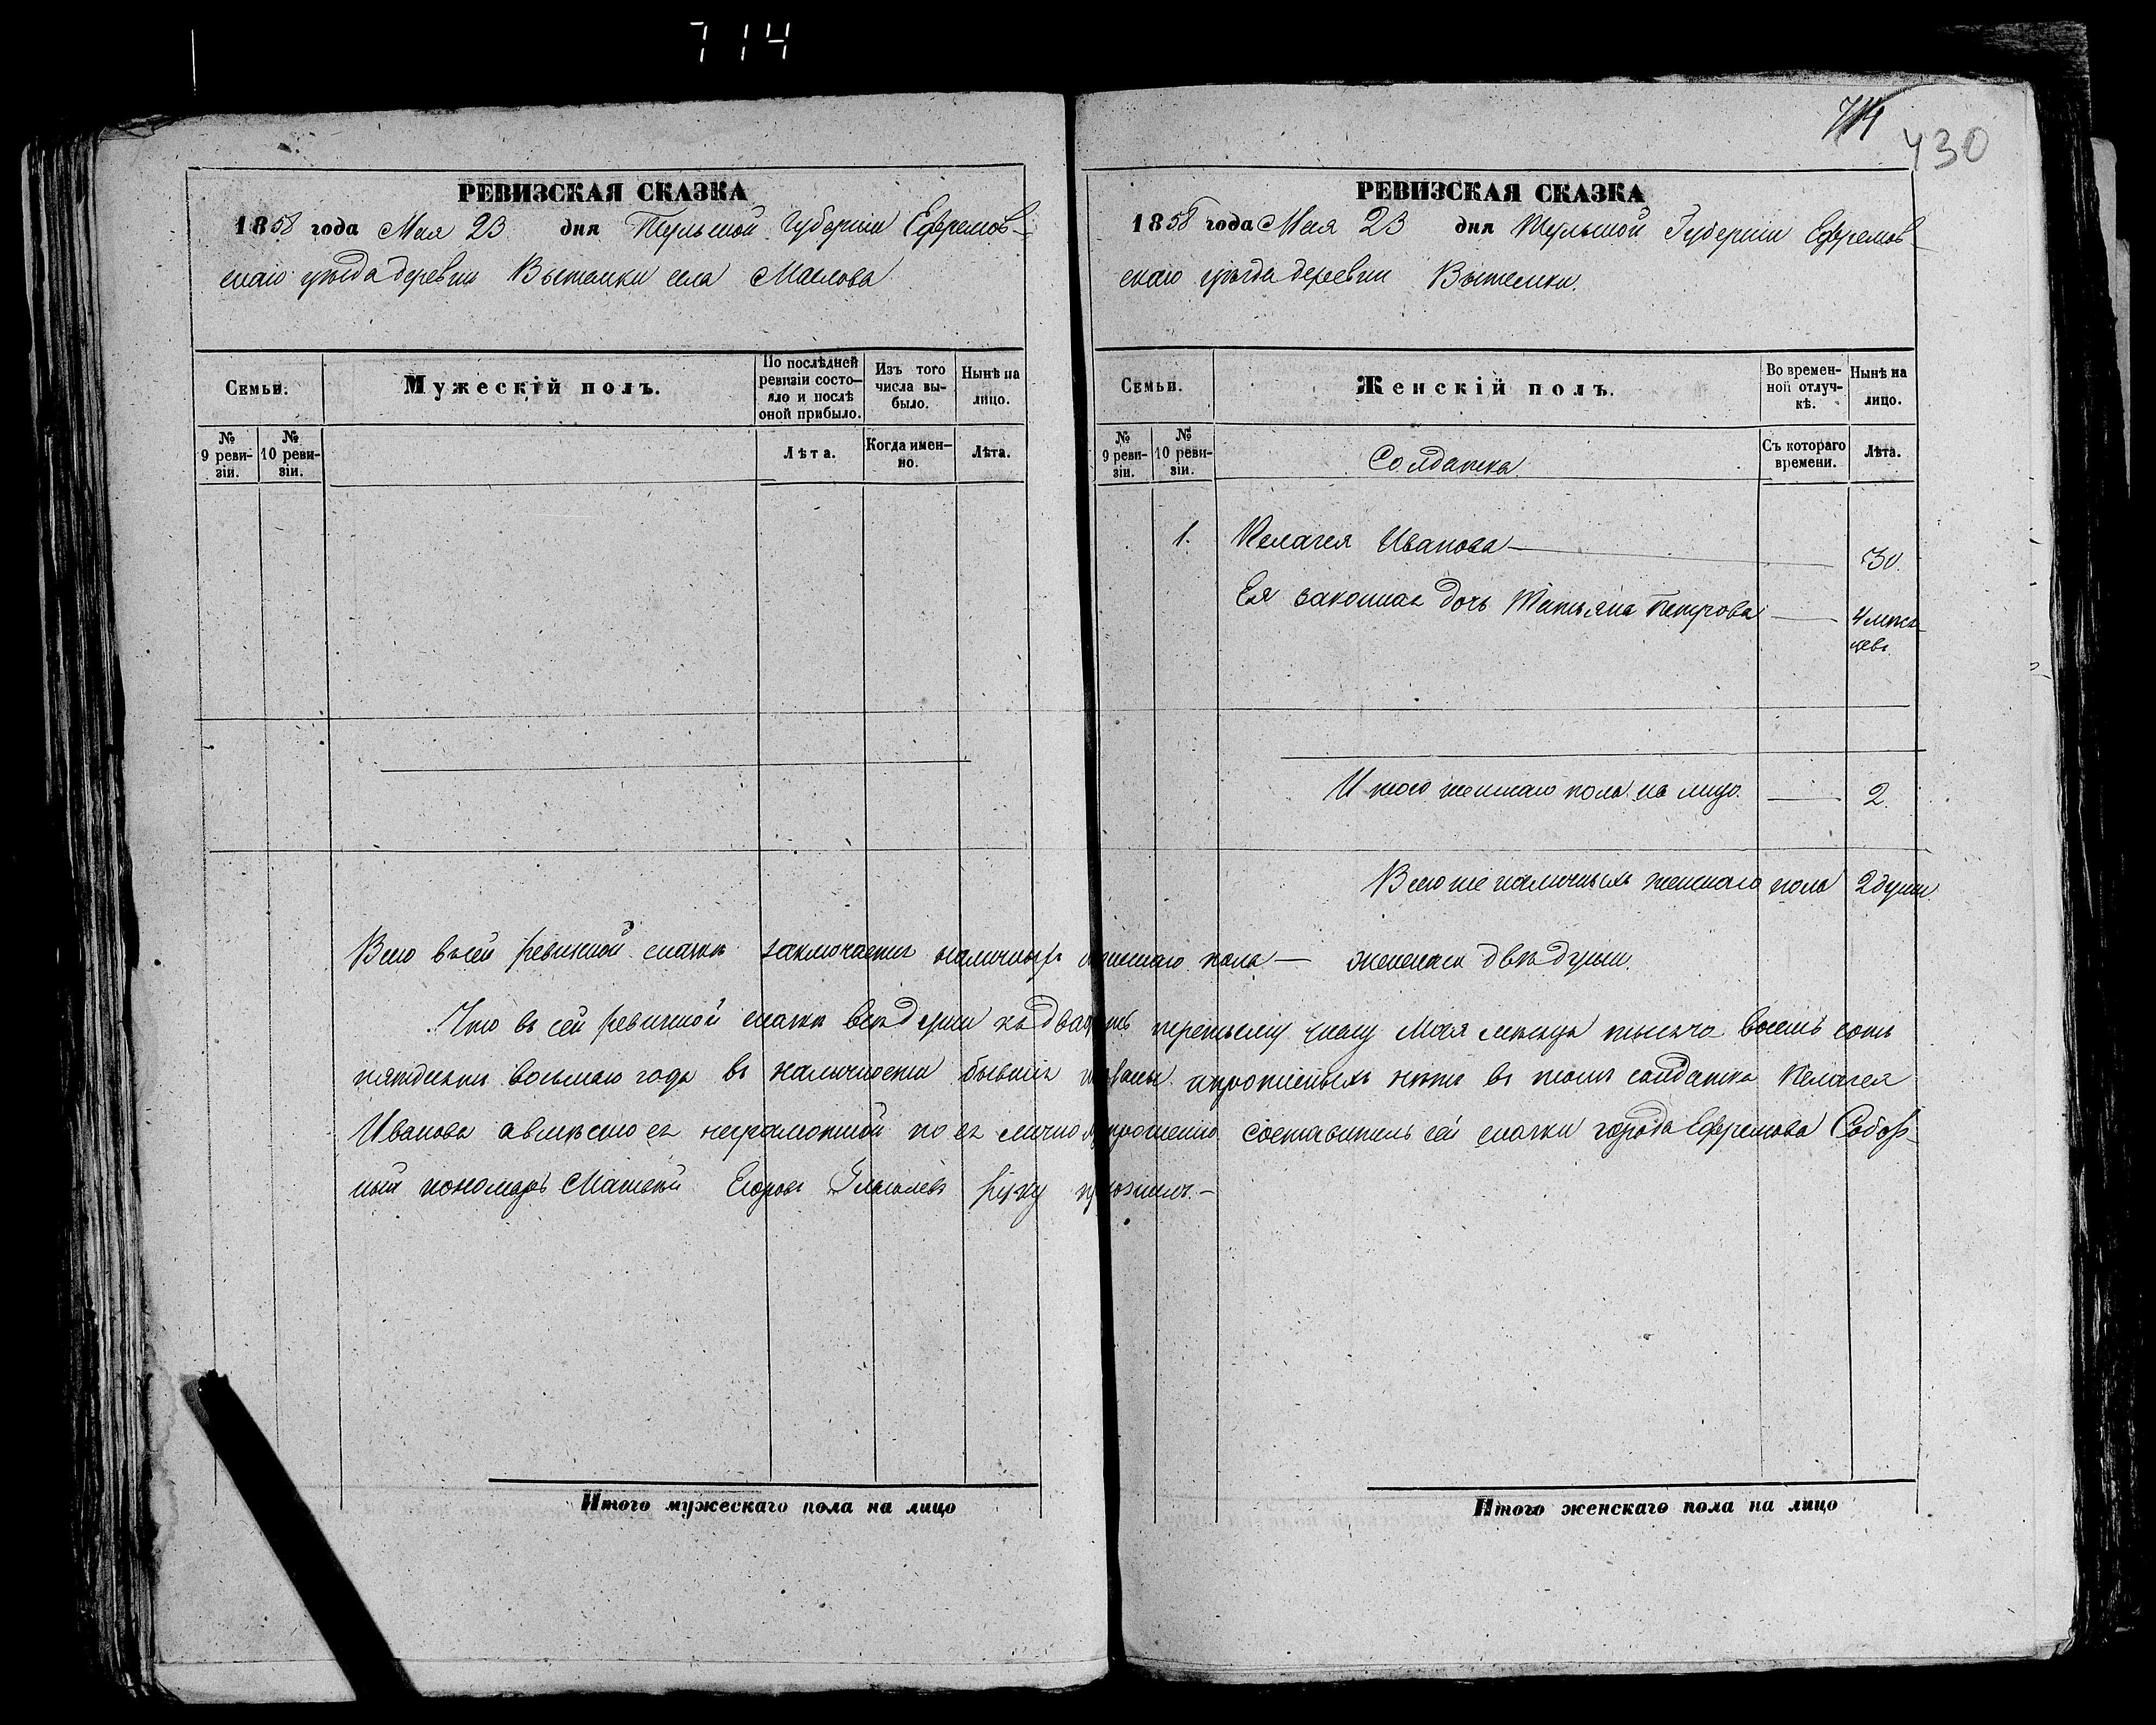 714
РЕВИЗСКАЯ СКАЗКА
1858 года Мая 23 дня Тульской Губернии Ефремов-
скаго уѣзда деревни Вытемки села Маслова
Семьи.
Мужескій полъ.
По послѣдней ревизіи состо-
яло и послѣ оной прибыло.
Изъ того числа вы-
было.
Нынѣ на лицо.
№ 9 реви-
зіи.
№ 10 реви-
зіи.
Лѣта.
Когда имен-
но.
Лѣта.
714
430
РЕВИЗСКАЯ СКАЗКА
1858 года Мая 23 дня Тульской Губерніи Ефремов-
скаго уѣзда деревни Вытемки.
Семьи.
Женскій полъ.
Во времен-
ной отлуч-
кѣ.
Нынѣ на лицо.
№ 9 реви-
зіи.
№ 10 реви-
зіи.
Солдатка
Съ котораго времени.
Лѣта.
1. Пелагея Иванова — 30.
Ея законная дочь Татьяна Петрова — 4 мѣся-
цевъ.
Итого женскаго пола на лицо. — 2.
Всего же наличныхъ женскаго пола 2 души.
Всего въ сей ревизской сказкѣ заключается наличныхъ мужскаго пола — женскаго двѣ души.
Что въ сей ревизской сказкѣ всѣ души къ двадцать третьему числу Мая мѣсяца тысяча восемь сотъ
пятдесятъ восьмаго года въ наличности бывшія показаны и прописныхъ нѣтъ въ томъ солдатка Пелагея
Иванова а вмѣсто ея неграмотной по ея личному прошенію составитель сей сказки города Ефремова Собор-
ный пономарь Матвей Егоровъ Глаголевъ руку приложилъ. —
Итого мужескаго пола на лицо
Итого женскаго пола на лицо